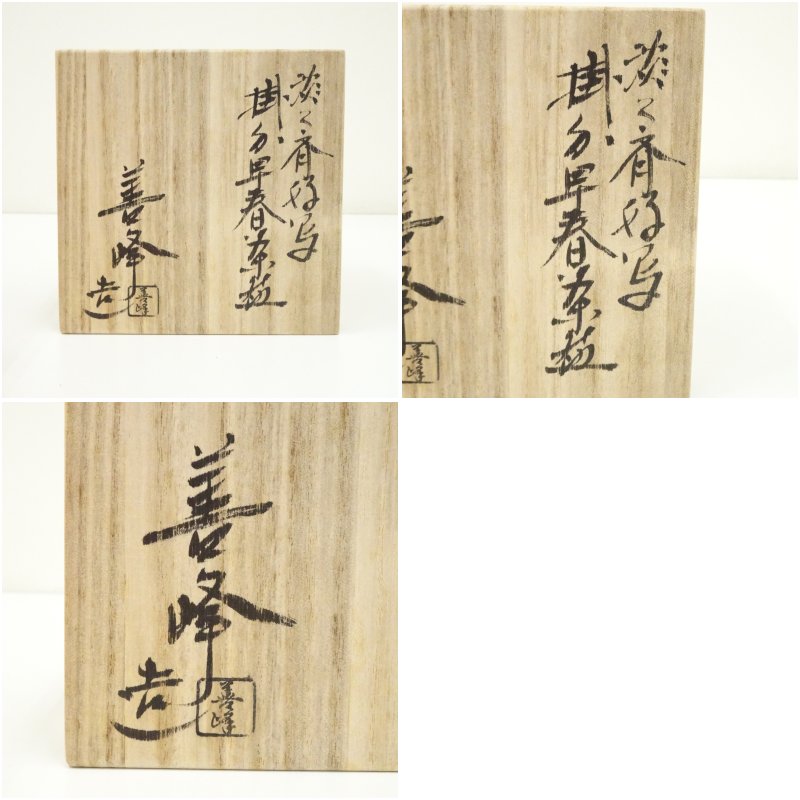 淡々斎好写
掛分早春茶碗
善峰造
善峰
淡々斎好写
掛分早春茶碗
善峰
善峰
善峰造
善峰